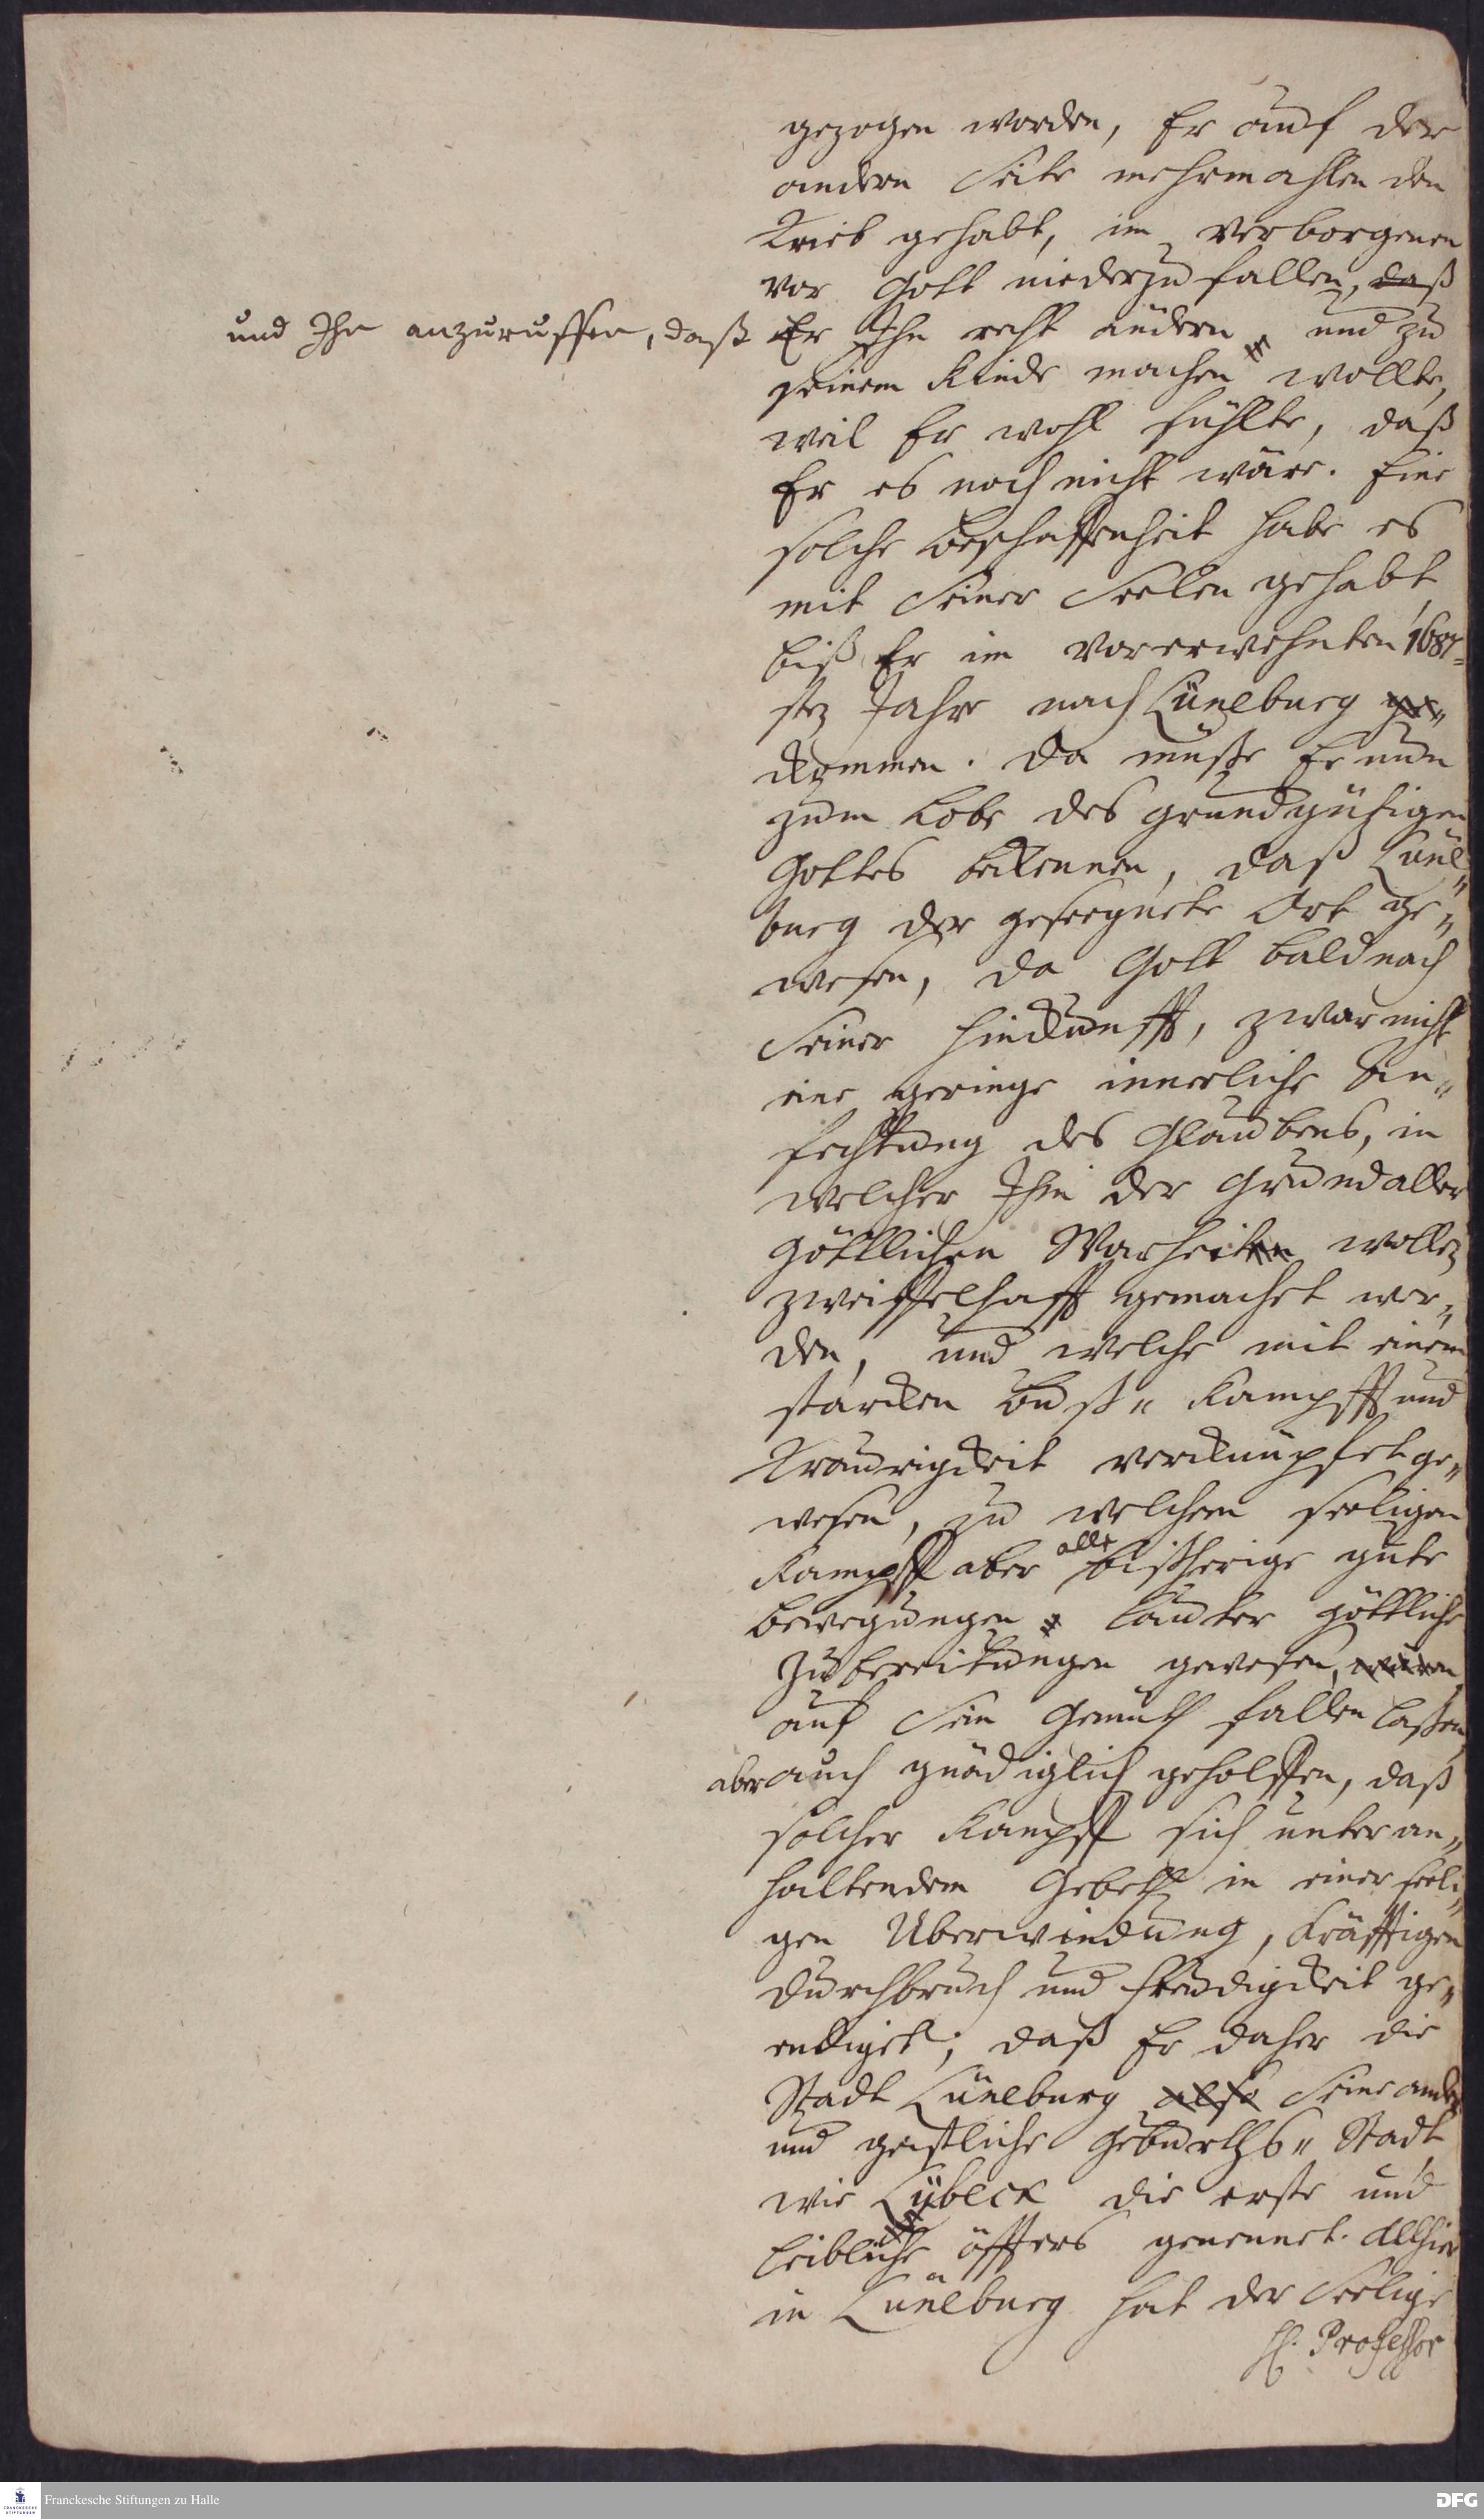 gezogen worden, Er auch auf der
andern Seite mehrmahlen den
Trieb gehabt, im verborgenen
vor Gott niederzufallen, daß
und Ihn anzuruffen, daß
Er Ihn recht ändern, und zu
seinem Kinde machen wollte,
weil Er wohl fühlte, daß
Er es noch nicht wäre. Eine
solche Beschaffenheit habe es
mit Seiner Seelen gehabt
biß Er im vorerwehnten 1687=
sten Jahre nach Lüneburg ge„
kommen. Da müste Er nun
zum Lobe des grundgütigen
Gottes bekennen, daß Lüne„
burg der geseegnete Ort ge„
wesen, da Gott bald nach
Seiner Hinkunfft, zwar nicht
eine geringe innerliche An„
fechtung des Glaubens, in
welcher Ihm der Grund aller
göttlichen Warheiten wollen
zweiffelhafft gemachet wer„
den, und welche mit einem
starcken Buß„ Kampff und
Traurigkeit verknüpfet ge„
wesen, zu welchem seeligen
Kampff aber alle bißherige gute
Bewegungen lauter göttliche
Zubereitungen gewesen, wären
auf Sein Gemüth fallen lassen
aber auch gnädiglich geholffen, daß
solcher Kampff sich unter an„
haltendem Gebeth in einer seeli„
gen Überwindung, kräfftigen
Durchbruch und Freudigkeit ge„
endiget; daß Er daher die
Stadt Lüneburg also Seine andere
und geistliche Geburths„ Stadt
wie Lübeck die erste und
leibliche öffters genennet. Allhier
in Lüneburg hat der Seelige
H. Professor
Franckesche Stiftungen zu Halle
DFG